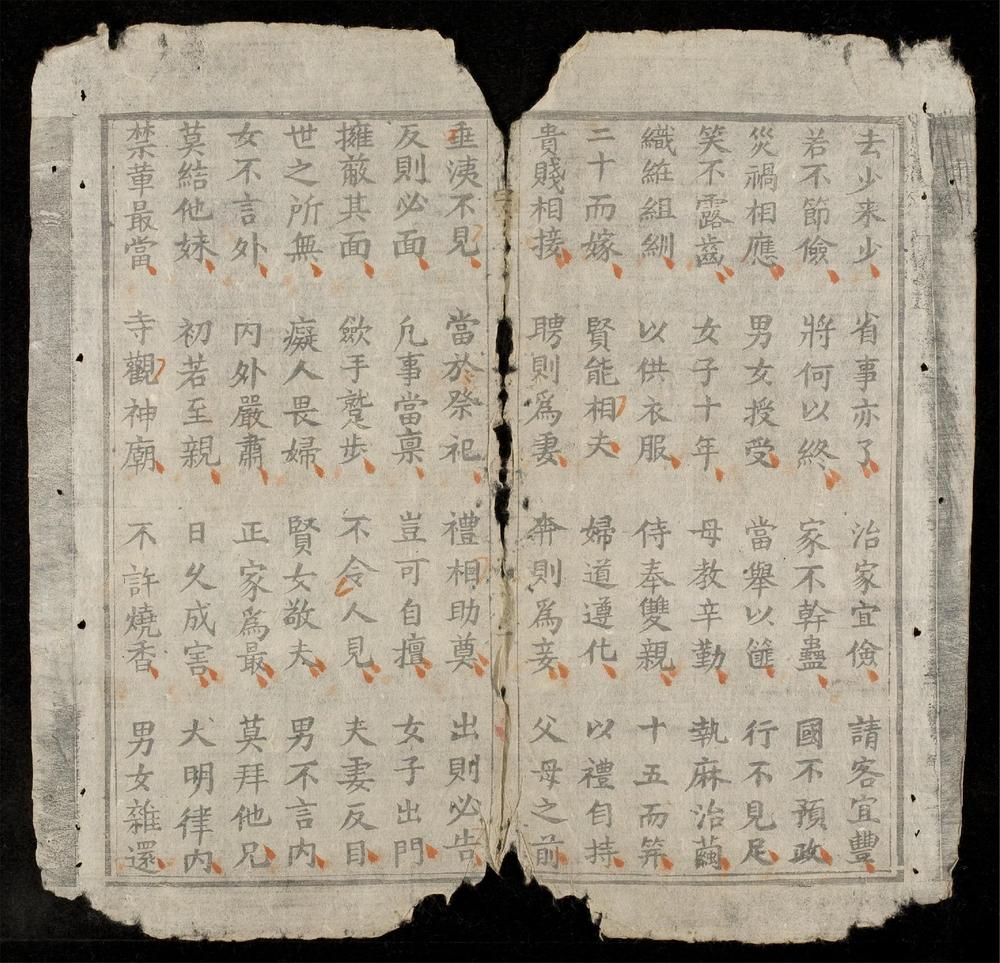 去少来少 省事亦了 治家宜儉 請客宜豐
若不節儉 將何以終 家不幹蠱 國不預政
災禍相應 男女授受 當舉以篚 行不見足
笑不露齒 女子十年 母教辛勤 執麻治繭
織絍組紃 以供衣服 侍奉雙親 十五而笄
二十而嫁 賢能相夫 婦道遵化 以禮自持
貴賤相接 聘則為妻 奔則為妾 父母之前
垂洟不見 當於祭祀 禮相助奠 出則必告
反則必面 凢事當稟 豈可自擅 女子出門
擁蔽其面 斂手蹔步 不令人見 夫妻反目
世之所無 癡人畏婦 賢女敬夫 男不言內
女不言外 內外嚴肅 正家為最 莫拜他兄
莫結他妹 初若至親 日久成害 大明律內
禁葷最當 寺觀神廟 不許燒香 男女雜還